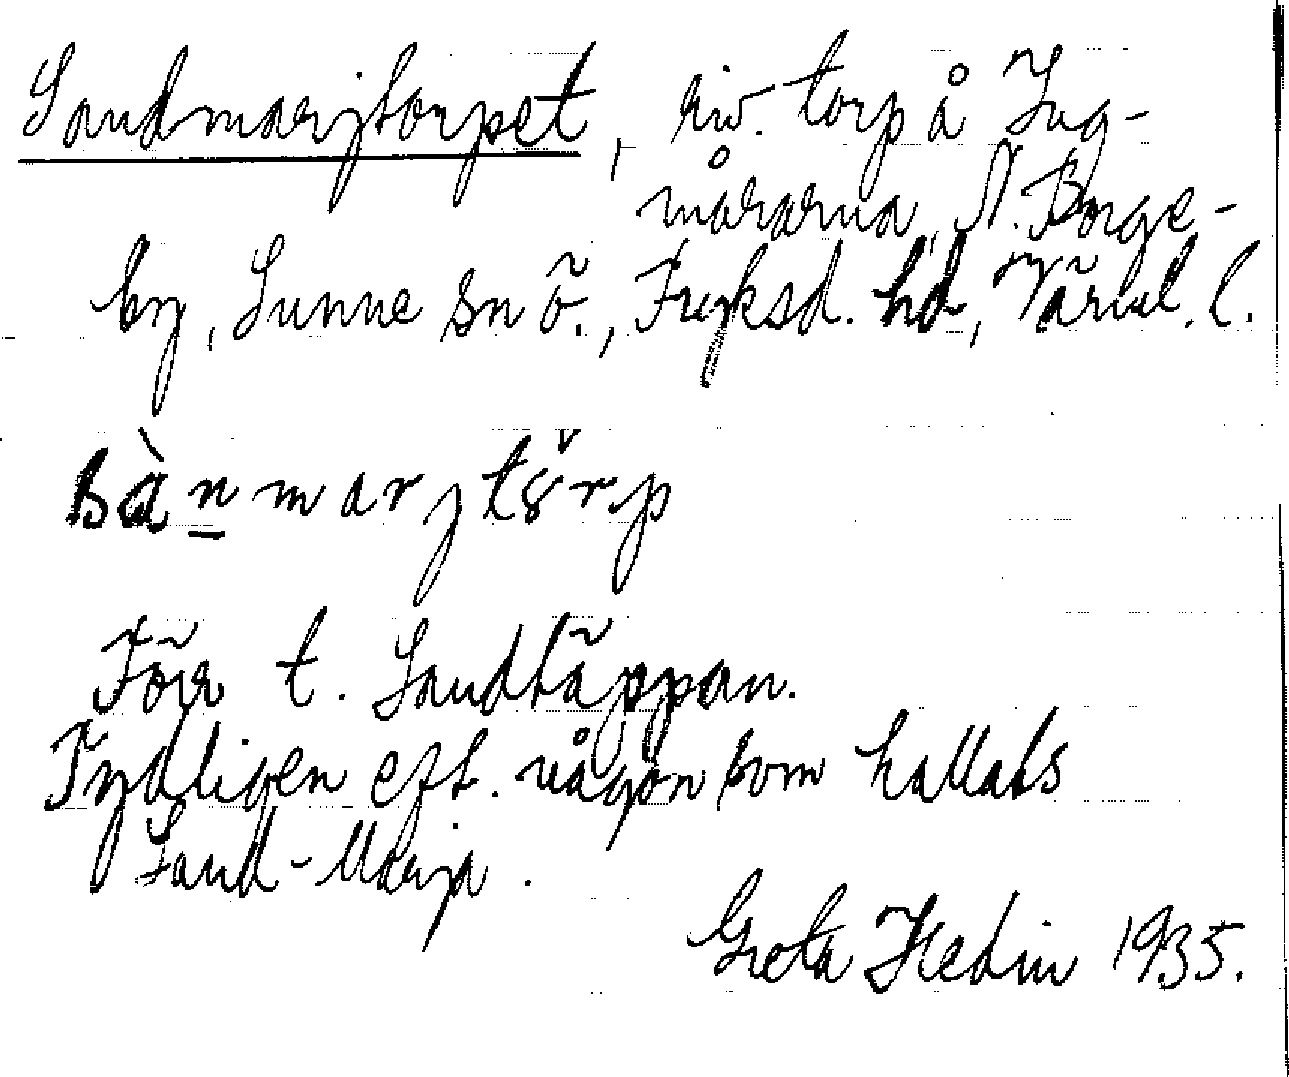 Sandmarjtorpet, riv. torp å Ing-
mårarna, N. Borge-
by, Sunne sn ö., Fryksd. hd, Värml. l.
sànmarjtɤ̌rp
Förr t. Sandtäppan.
Tydligen eft. någon som kallats
Sand-Marja.
Greta Hedin 1935.